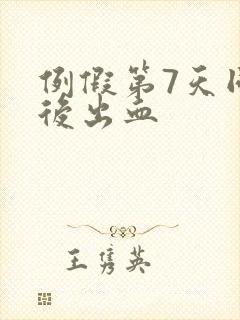 例假第7天
後出血
王隽英